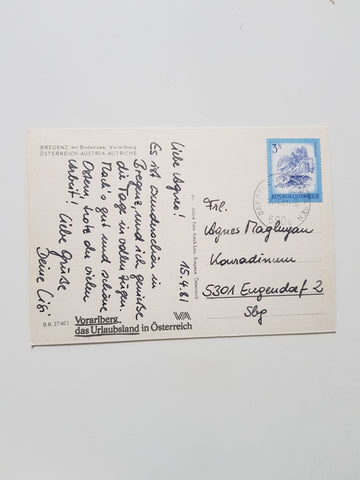 BREGENZ am Bodensee, Vorarlberg
ÖSTERREICH-AUSTRIA-AUTRICHE
15.4.81
Liebe Agnes!
Es ist wunderschön in
Bregenz und ich genieße
die Tage in vollen Zügen.
Mach's gut und schöne
Ostern trotz der vielen
Arbeit! Liebe Grüße
Deine Lisi
BR 27401
Vorarlberg
das Urlaubsland in Österreich
VVA
3S
REPUBLIK ÖSTERREICH
Frl.
Agnes
Konradinum
5301 Eugendorf 2
Sbg